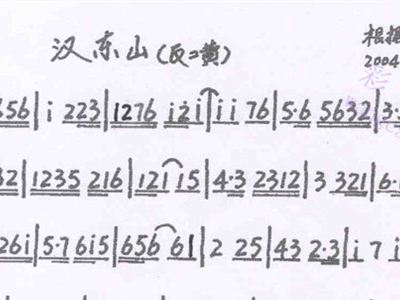 汉东山(反二黄)
根据
2004
356|i 223|1276 i2i|ii 76|5·6 5632|3·
32|1235 216|121 15|4·3 2312|3 321|6·
26i|5·7 6i5|656 61|2 25|43 2·3|i 7 i